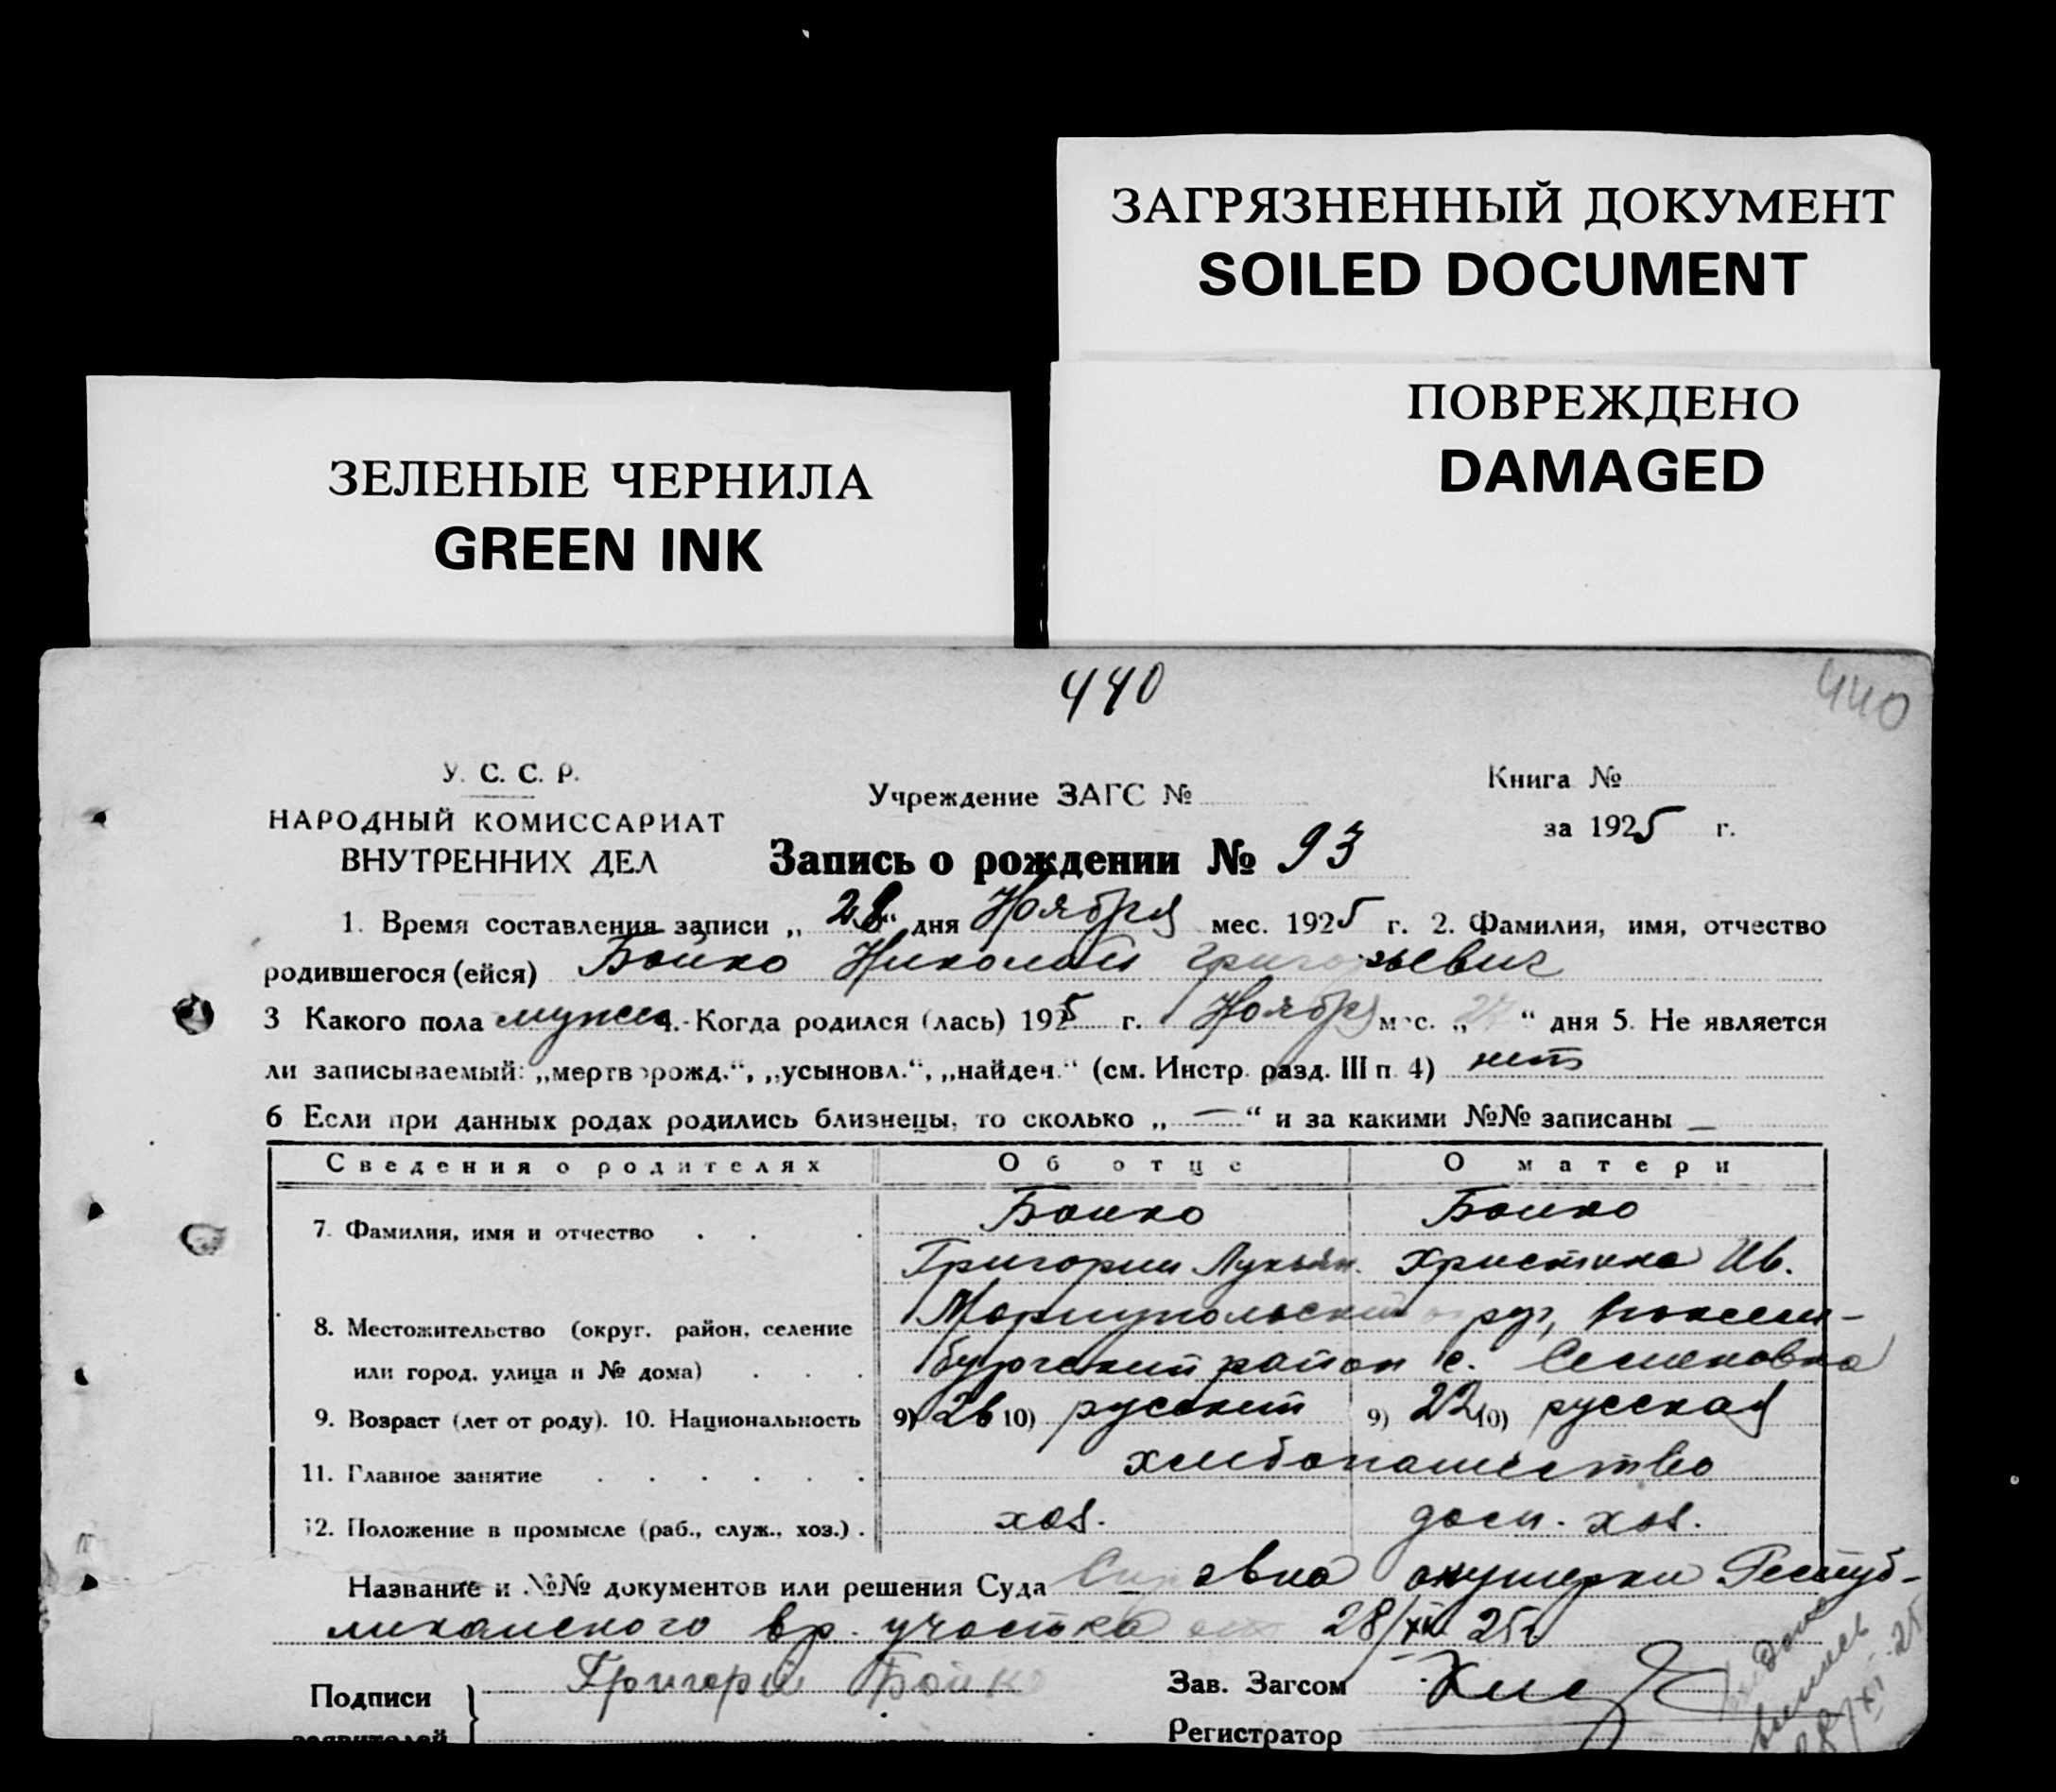 ЗАГРЯЗНЕННЫЙ ДОКУМЕНТ
SOILED DOCUMENT
ПОВРЕЖДЕНО
DAMAGED
ЗЕЛЕНЫЕ ЧЕРНИЛА
GREEN INK
440
440
У. С. С. Р.
НАРОДНЫЙ КОМИССАРИАТ
ВНУТРЕННИХ ДЕЛ
Учреждение ЗАГС №
Книга №
за 1925 г.
Запись о рождении № 93
1. Время составления записи „ 28 “ дня Ноября мес. 1925 г. 2. Фамилия, имя, отчество
родившегося (ейся) Бойко Николай Григорьевич
3 Какого пола мужск 4. Когда родился (лась) 1925 г. Ноября мес. „ “ дня 5. Не является
ли записываемый: „мертворожд.“, „усыновл.“, „найден.“ (см. Инстр. разд. III п 4) нет
6 Если при данных родах родились близнецы, то сколько „ — “ и за какими №№ записаны —
Сведения о родителях Об отце О матери
7. Фамилия, имя и отчество . . . Бойко Бойко
Григорий Лукьян. Христина Ив.
8. Местожительство (округ, район, селение Мариупольский
или город, улица и № дома) . . . район с. Семеновка
9. Возраст (лет от роду). 10. Национальность 9) 26 10) русский 9) 22 10) русская
11. Главное занятие . . . . . . хлебопашество
12. Положение в промысле (раб., служ., хоз.) . хоз. дом. хоз.
Название и №№ документов или решения Суда акушерки Респуб-
ликанского вр. участка от 28/XI 25г
Подписи Григорий Бойко
заявителей
Зав. Загсом
Регистратор
28/XI 25